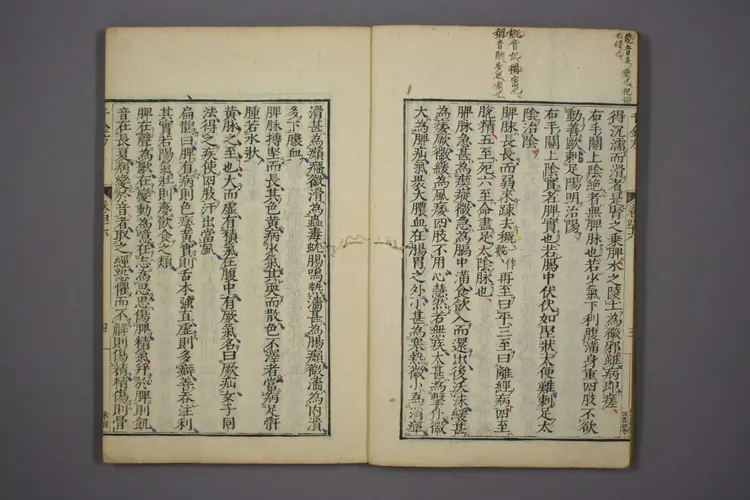 得沉濡而滑者是腎之乗脾水之陵土為微邪雖病即瘥
右手關上陰絶者無脾脉也若少氣下利腹滿身重四肢不欲
動善歐刺足陽明治陽
右手關上陰實者脾實也若腸中伏伏如堅狀大便難刺足太
陰治陰
脾脉長長而弱來踈去概 再至曰平三至曰離經病四至
脱精五至死六至命盡足太陰脉也
脾脉急甚為瘈瘲微急為膈中滿食飲入而還出後沃沫緩甚
為痿厥微緩為風痿四肢不用心慧然若無疾大甚為擊仆微
大為脾疝氣裹大膿血在腸胃之外小甚為寒熱微小為消癉
滑甚為㿗癃微滑為蟲毒蚘腸鳴熱濇甚為腸㿗微濇為内潰
多下膿血
脾脉搏堅而長其色黄病少氣其耎而散色不澤者當病足骭
腫若水狀
黄脉之至也大而虚有積氣在腹中有厥氣名曰厥疝女子同
法得之疾使四肢汗出當風
扁鵲曰脾有病則色萎黄實則舌本強直虚則多癖善吞注利
其實若陽氣壯則夢飲食之類
脾在聲為歌在變動為噫在志為思思傷脾精氣并於脾則飢
音在長夏病變於音者取之經恐懼而不解則傷精精傷則骨